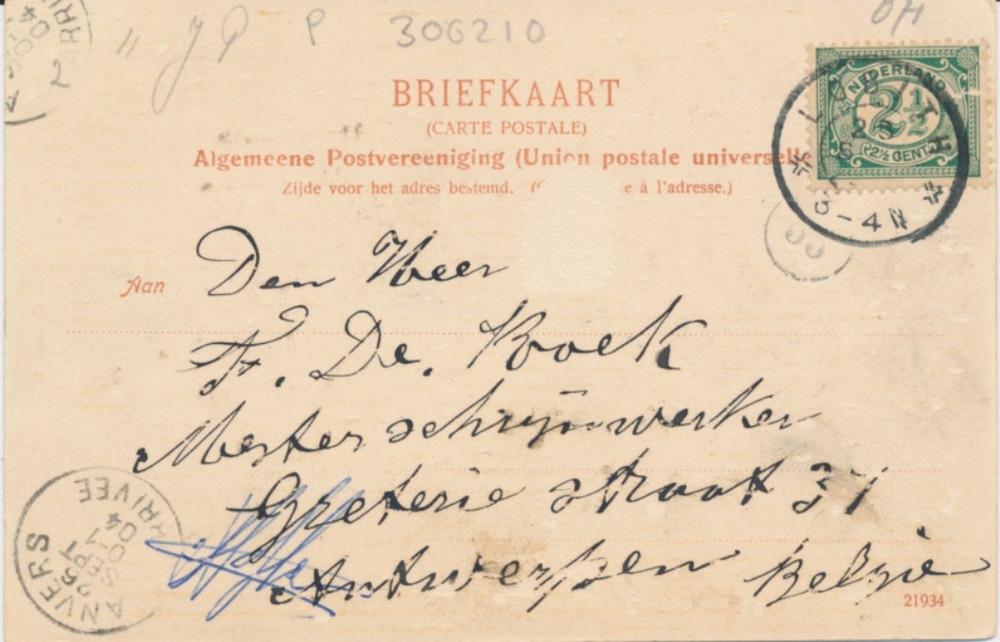 " J P P 306210
BRIEFKAART
(CARTE POSTALE)
Algemeene Postvereeniging (Union postale universelle
Zijde voor het adres bestemd. ( e à l'adresse.)
NEDERLAND
2½
2½ CENT
3-4N
Aan Den Heer
F. De. Kock
Mester schrijnwerker
straat 31
Antwerpen Belgie
21934
ANVERS
ARRIVEE
04